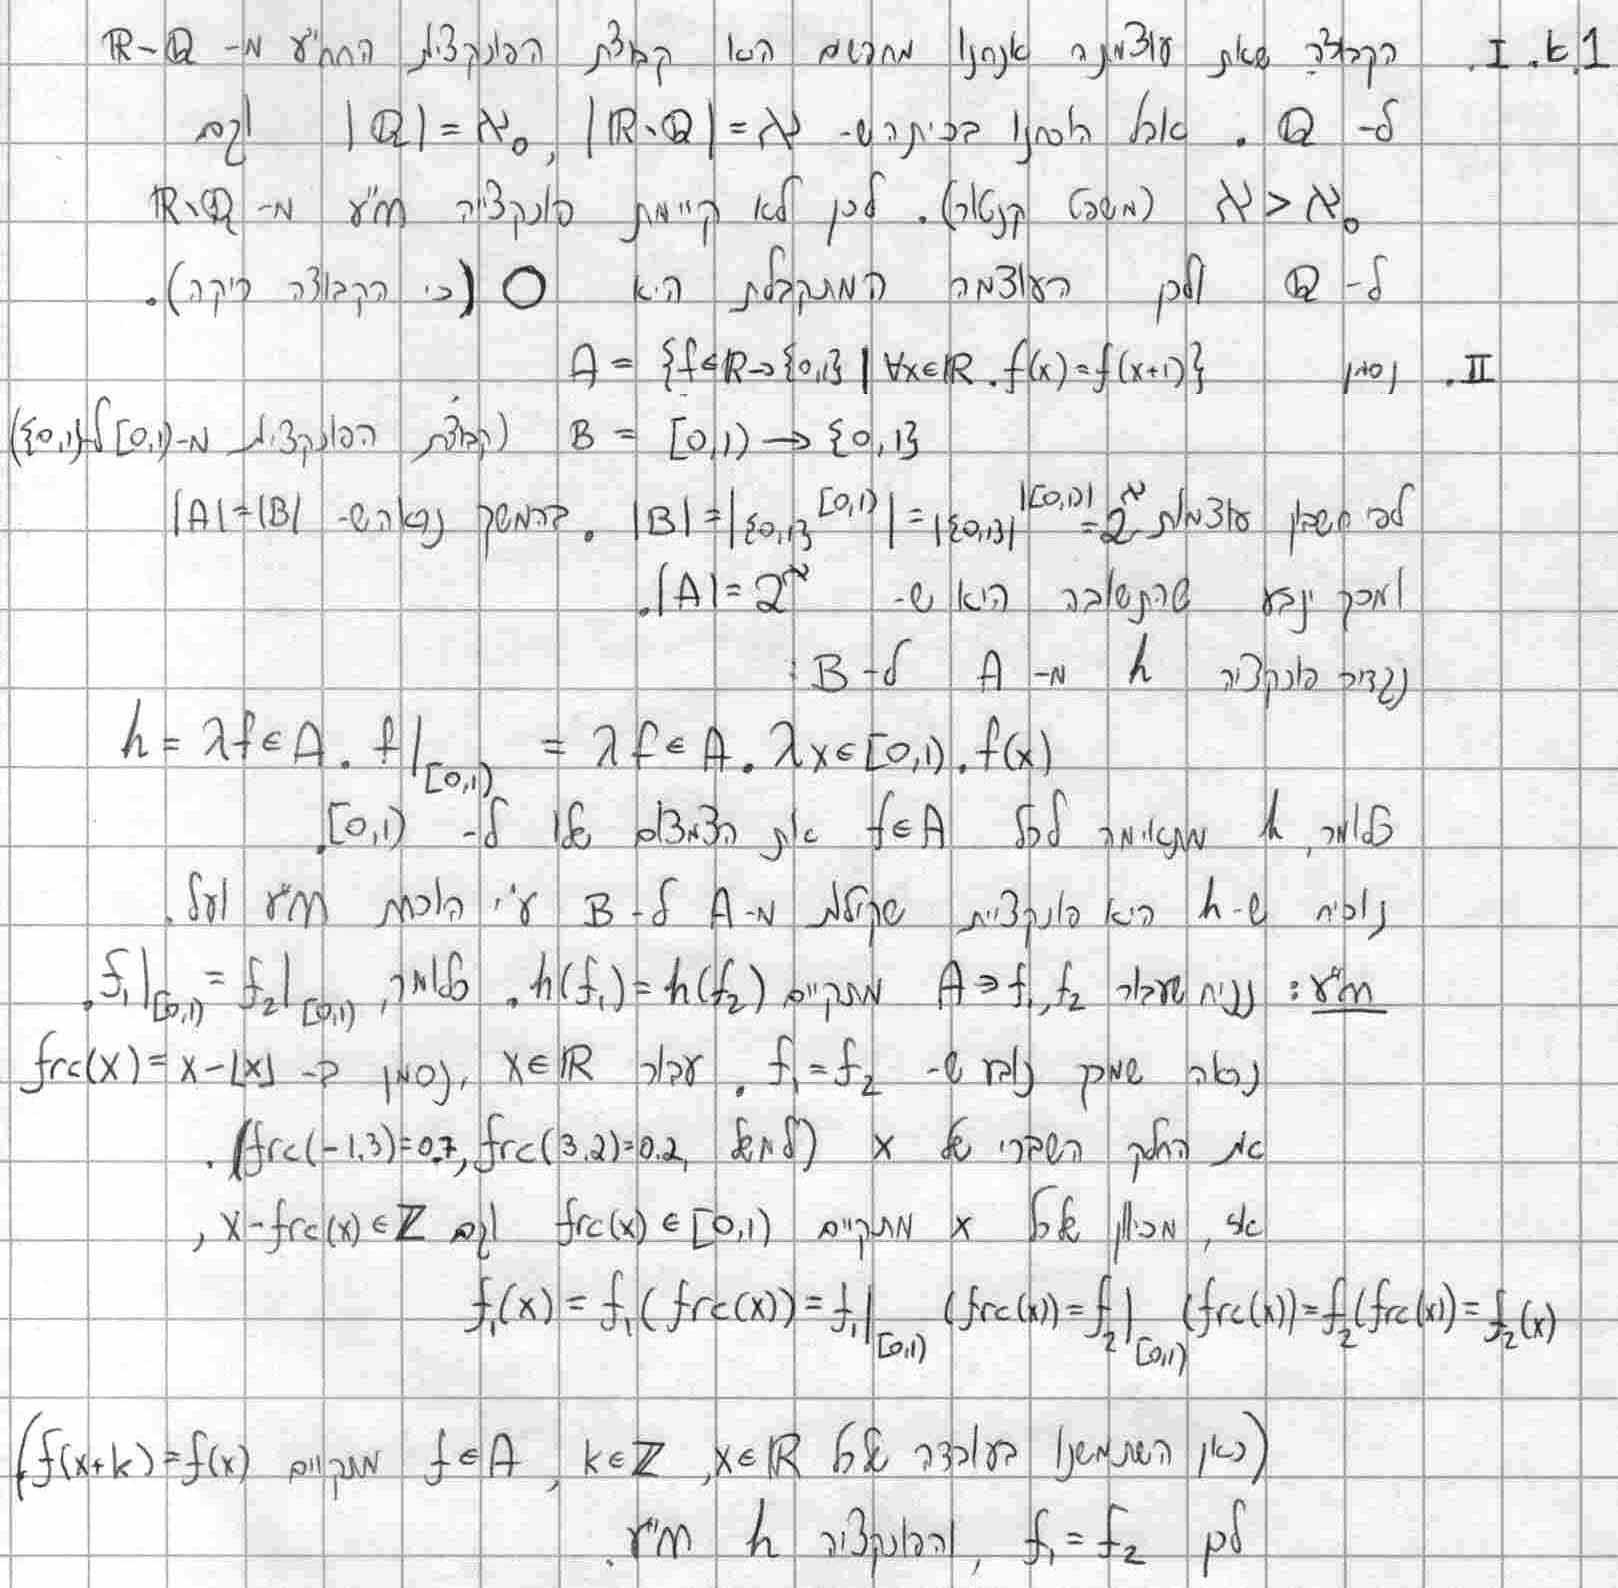 1.א. I. הקבוצה שאת עוצמתה אנחנו מחפשים היא קבוצת הפונקציות החח"ע מ- ℝ-ℚ
ל- ℚ . אבל הוכחנו בכיתה ש- |ℝ∖ℚ| = א, |ℚ| = א₀ וגם
א > א₀ (משפט קנטור). לכן לא קיימת פונקציה חח"ע מ- ℝ∖ℚ
ל- ℚ ולכן העוצמה המתקבלת היא 0 (כי הקבוצה ריקה).
II. נסמן A = {f∈ℝ→{0,1} | ∀x∈ℝ . f(x) = f(x+1)}
B = [0,1) → {0,1} (קבוצת הפונקציות מ-[0,1) ל-{0,1})
לפי חשבון עוצמות |B| = |{0,1}^[0,1)| = |{0,1}|^|[0,1)| = 2^א . בהמשך נראה ש- |A|=|B|
ומכך ינבע שהתשובה היא ש- |A| = 2^א.
נגדיר פונקציה h מ- A ל- B :
h = λf∈A . f|[0,1) = λf∈A . λx∈[0,1) . f(x)
כלומר, h מתאימה לכל f∈A את הצמצום שלו ל- [0,1).
נוכיח ש-h היא פונקציית שקילות מ-A ל-B ע"י הוכחת חח"ע ועל.
חח"ע: נניח שעבור A∋f₁,f₂ מתקיים h(f₁)=h(f₂). כלומר, f₁|[0,1) = f₂|[0,1).
נראה שמכך נובע ש- f₁=f₂ . עבור x∈ℝ, נסמן ב- frc(x) = x-⌊x⌋
את החלק השברי של x (למשל frc(3.2)=0.2, frc(-1.3)=0.7).
אז, מכיוון שלכל x מתקיים frc(x)∈[0,1) וגם x-frc(x)∈ℤ,
f₁(x) = f₁(frc(x)) = f₁|[0,1) (frc(x)) = f₂|[0,1) (frc(x)) = f₂(frc(x)) = f₂(x)
(כאן השתמשנו בעובדה שלכל x∈ℝ, k∈ℤ, f∈A מתקיים f(x+k)=f(x))
לכן f₁=f₂, והפונקציה h חח"ע.